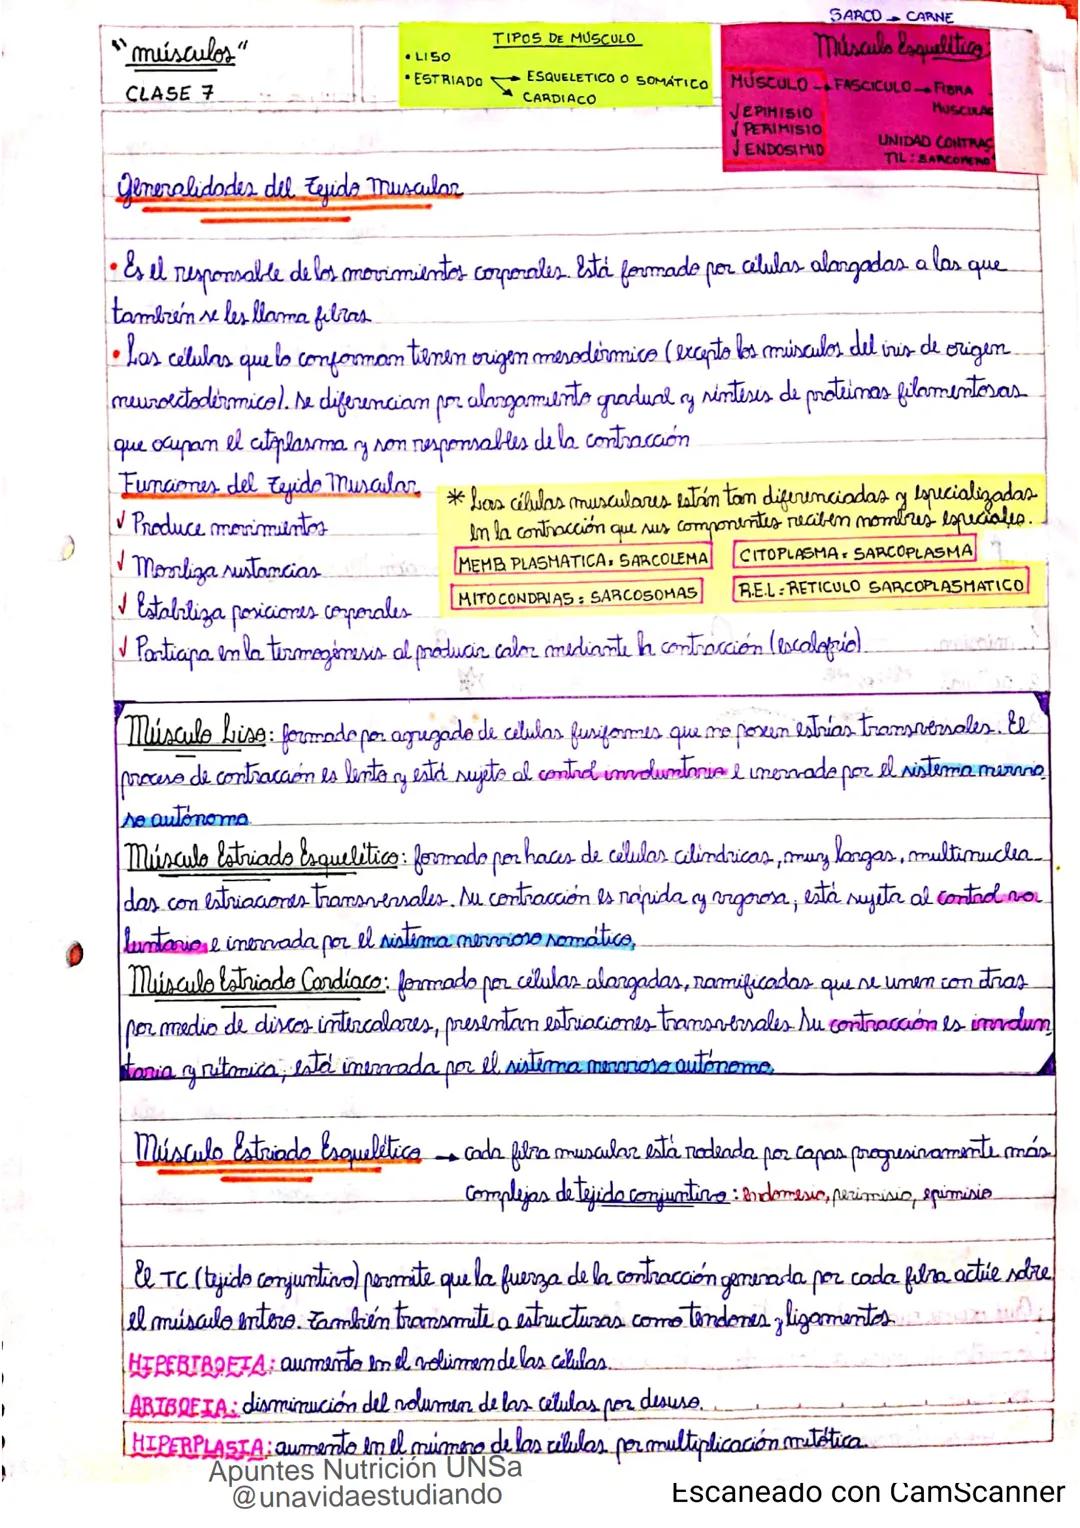 SARCO → CARNE
"músculos"
CLASE 7
TIPOS DE MÚSCULO
• LISO
• ESTRIADO → ESQUELETICO O SOMÁTICO
→ CARDIACO
Músculo Esquelético
MÚSCULO → FASCICULO → FIBRA
MUSCULAR
√ EPIMISIO
√ PERIMISIO
√ ENDOSIMIO
UNIDAD CONTRAC
TIL: SARCOMERO
Generalidades del Tejido Muscular
• Es el responsable de los movimientos corporales. Está formado por células alargadas a las que
también se les llama fibras
• Las células que lo conforman tienen origen mesodérmico (excepto los músculos del iris de origen
neuroectodérmico). Se diferencian por alargamiento gradual y síntesis de proteínas filamentosas
que ocupan el citoplasma y son responsables de la contracción
Funciones del Tejido Muscular
√ Produce movimientos
√ Moviliza sustancias
√ Estabiliza posiciones corporales
√ Participa en la termogénesis al producir calor mediante la contracción (escalofrío).
* Las células musculares están tan diferenciadas y especializadas
en la contracción que sus componentes reciben nombres especiales.
MEMB PLASMATICA: SARCOLEMA
CITOPLASMA: SARCOPLASMA
MITOCONDRIAS: SARCOSOMAS
R.E.L: RETICULO SARCOPLASMATICO
Músculo Liso: formado por agregado de células fusiformes que no poseen estrías transversales. El
proceso de contracción es lento y está sujeto al control involuntario e inervado por el sistema nervio
so autónomo.
Músculo Estriado Esquelético: formado por haces de células cilíndricas, muy largas, multinuclea
das con estriaciones transversales. Su contracción es rápida y vigorosa, está sujeta al control vo
luntario e inervada por el sistema nervioso somático.
Músculo Estriado Cardíaco: formado por células alargadas, ramificadas que se unen con otras
por medio de discos intercalares, presentan estriaciones transversales. Su contracción es involun
taria y rítmica, está inervada por el sistema nervioso autónomo.
Músculo Estriado Esquelético → cada fibra muscular está rodeada por capas progresivamente más
complejas de tejido conjuntivo: Endomesio, perimisio, epimisio
El TC (tejido conjuntivo) permite que la fuerza de la contracción generada por cada fibra actúe sobre
el músculo entero. También transmite a estructuras como tendones y ligamentos.
HIPERTROFIA: aumento en el volumen de las células.
ATROFIA: disminución del volumen de las células por desuso.
HIPERPLASIA: aumento en el número de las células por multiplicación mitótica.
Apuntes Nutrición UNSa
@unavidaestudiando
Escaneado con CamScanner